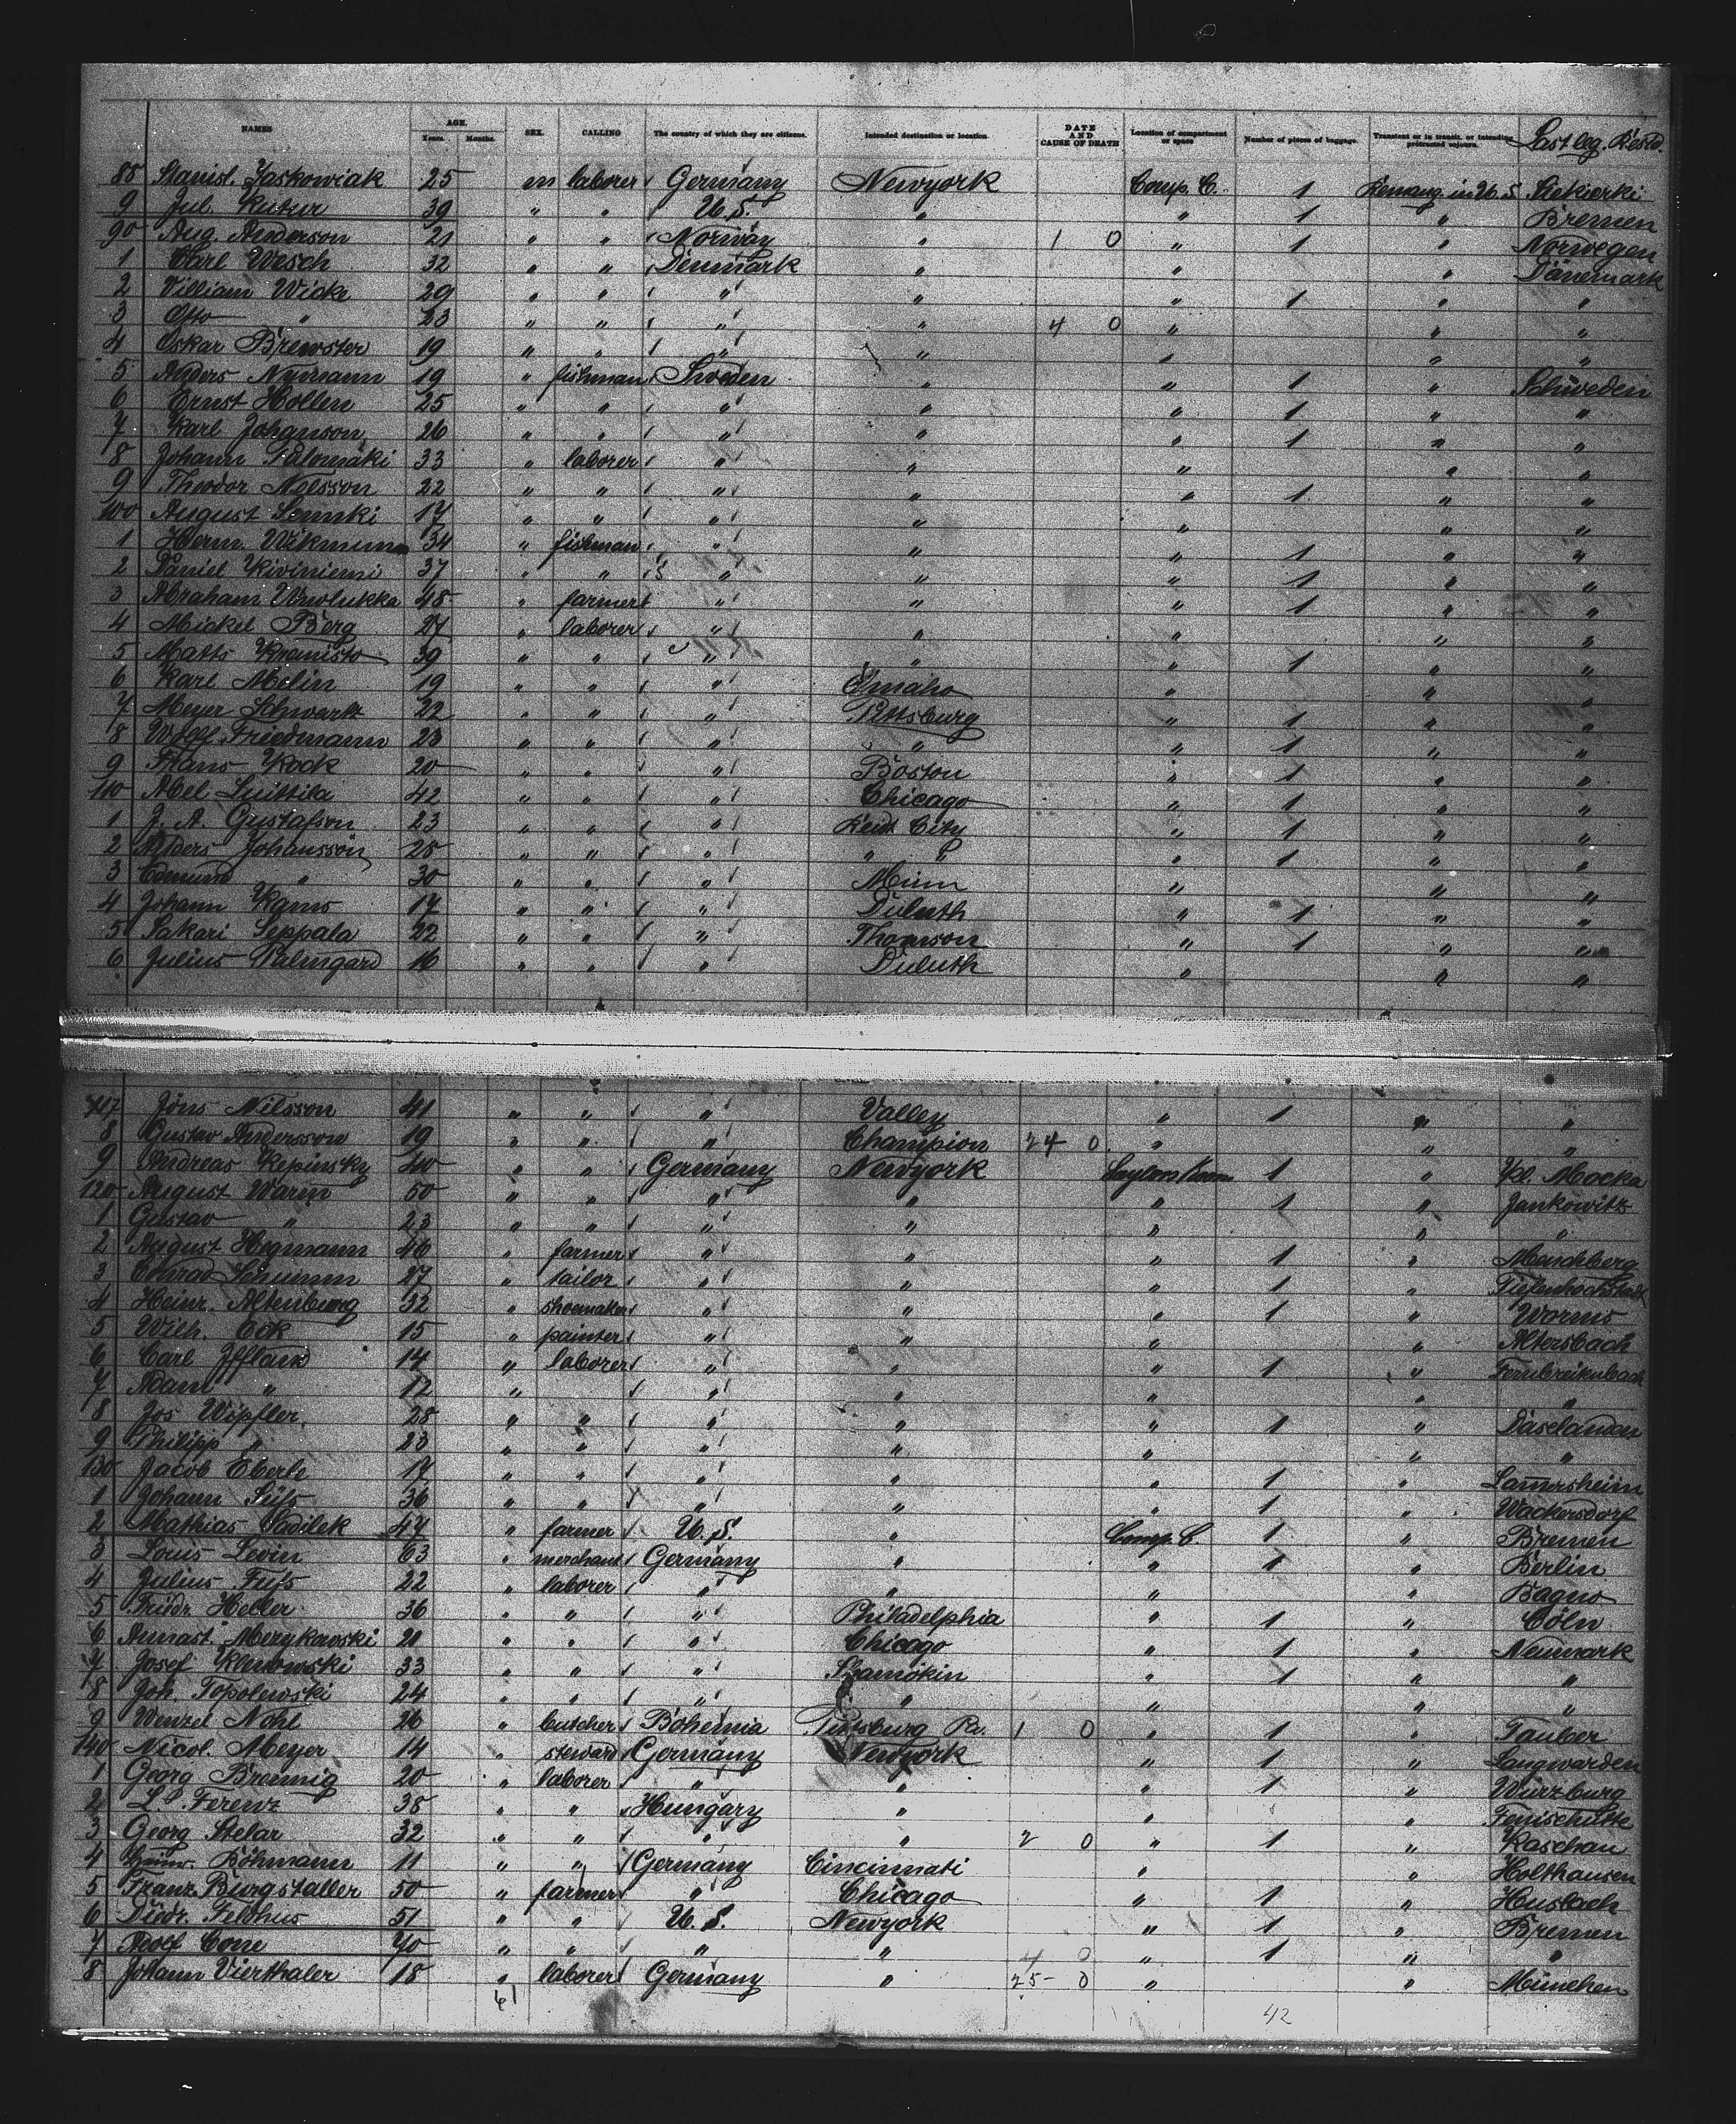 NAMES AGE. Years. Months. SEX. CALLING The country of which they are citizens. Intended destination or location. DATE AND CAUSE OF DEATH Location of compartment or space Number of pieces of baggage. Transient or in transit, or intending protracted sojourn. Last leg. Resid.
85 Stanisl. Jaskowiak 25 m laborer Germany Newyork Comp. C. 1 in U.S. Siekierki
9 Jul. 39 " " U.S. " " 1 " Bremen
90 Aug. Anderson 21 " " Norway " 1 0 " 1 " Norwegen
1 Carl Wesch 32 " " Denmark " " " Dänemark
2 William Wicke 29 " " " " " 1 " "
3 Otto " 23 " " " " 4 0 " " "
4 Oskar Brewster 19 " " " " " " "
5 Anders Nymann 19 " fishman Sweden " " 1 " Schweden
6 Ernst Hollen 25 " " " " " 1 " "
7 Karl Johanson 26 " " " " " 1 " "
8 Johann Palomäki 33 " laborer " " " " "
9 Theodor Nilsson 22 " " " " " 1 " "
100 August 17 " " " " " " "
1 Herm. 34 " fishman " " " 1 " "
2 Daniel Kiviniemi 37 " " " " " 1 " "
3 Abraham 48 " farmer " " " 1 " "
4 Mickel Berg 27 " laborer " " " " "
5 Matts 39 " " " " " 1 " "
6 Karl Melin 19 " " " Omaho " " "
7 Meyer Schwartz 22 " " " Pittsburg " 1 " "
8 Friedmann 23 " " " " " 1 " "
9 Hans Kock 20 " " " Boston " 1 " "
110 Abel Luittila 42 " " " Chicago " 1 " "
1 J. A. Gustafson 23 " " " City " 1 " "
2 Anders Johansson 28 " " " " " " 1 " "
3 Edmund " 30 " " " Minn " " "
4 Johann 17 " " " Duluth " 1 " "
5 Sakari Seppala 22 " " " Thomson " 1 " "
6 Julius Palmgard 16 " " " Duluth " " "
117 Jöns Nilsson 41 " " " Valley " 1 " "
8 Gustav Andersson 19 " " " Champion 24 0 " " "
9 Andreas Kepinsky 40 " " Germany Newyork 1 " Kl. Mocka
120 August Warm 50 " " " " " 1 " Jankowitz
1 Gustav " 23 " " " " " " "
2 August Hegmann 46 " farmer " " " 1 " Murchberg
3 Conrad Schumm 27 " tailor " " " 1 " Tiefenhochstadt
4 Heinr. Altenburg 32 " shoemaker " " " 1 " Worms
5 Wilh. Eck 15 " painter " " " " Altersbach
6 Carl Iffland 14 " laborer " " " 1 "
7 Adam " 12 " " " " " "
8 Jos Wipfler 28 " " " " " 1 " Daselandan
9 Philipp " 23 " " " " " " "
130 Jacob Eberle 17 " " " " " 1 " Lamersheim
1 Johann Süß 36 " " " " " 1 " Wackersdorf
2 Mathias Sadilek 47 " farmer U.S. " Comp. C. 1 " Bremen
3 Louis Levin 63 " merchant Germany " " 1 " Berlin
4 Julius 22 " laborer " " " " Bagno
5 Friedr. Heller 36 " " " Philadelphia " 1 " Cöln
6 Anast. Mezykowski 21 " " " Chicago " 1 " Neumark
7 Josef Klenowski 33 " " " Shamokin " 1 " "
8 Joh. Topolewski 24 " " " " " " "
9 Wenzel Nohl 26 " butcher Bohemia Pittsburg Pa. 1 0 " 1 " Tauber
140 Nicol. Meyer 14 " steward Germany Newyork " 1 " Langwarden
1 Georg Brennig 20 " laborer " " " 1 " Würzburg
2 L. Ferenz 38 " " Hungary " " "
3 Georg Stelar 32 " " " " 2 0 " 1 " Kaschau
4 Heinr. Böhmann 11 " " Germany Cincinnati " " Holthausen
5 Franz Burgstaller 50 " farmer " Chicago " 1 " Husbach
6 Diedr. Feldhus 51 " " U.S. Newyork " 1 " Bremen
7 Adolf Cone 70 " " " " 4 0 " 1 " "
8 Johann Vierthaler 18 " laborer Germany " 25 0 " " München
61 42